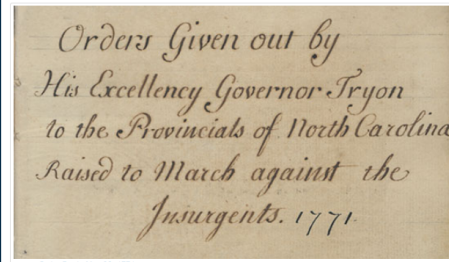 Orders Given out by
His Excellency Governor Tryon
to the Provincials of North Carolina
Raised to March against the
Insurgents. 1771